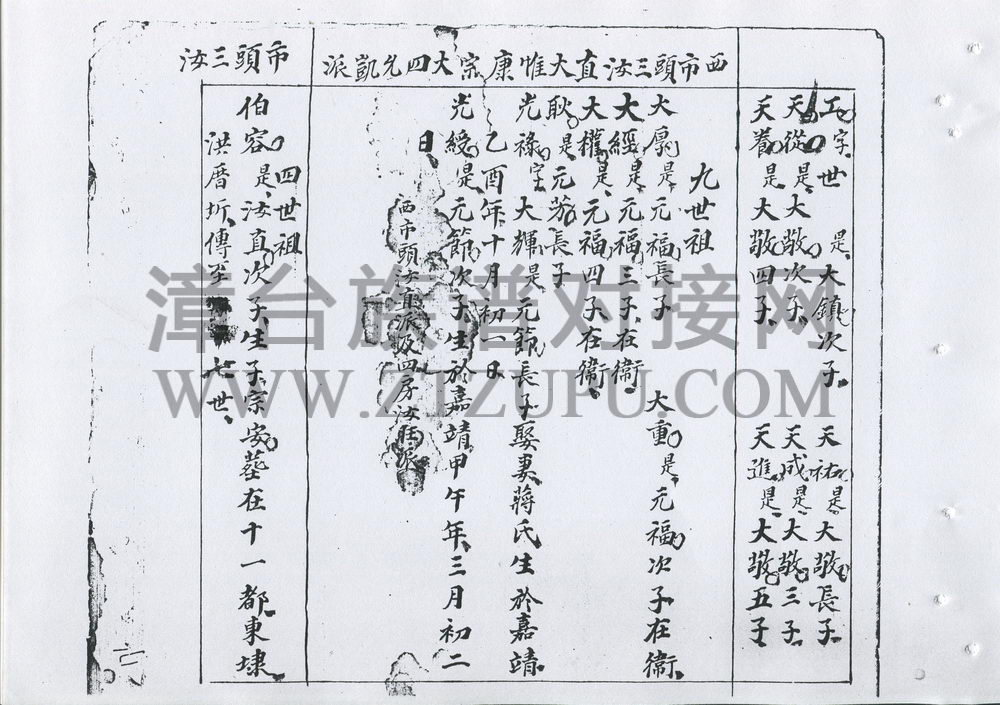 工字世 是大鎮次子 天祐是大敬長子
天從是大敬次子 天成是大敬三子
天養是大敬四子 天進是大敬五子
西市頭三汝直大惟康宗大四允凱派
九世祖
大廓是元福長子 大重是元福次子在衛
大經是元福三子在衛
大權是元福四子在衛
耿是元芳長子
光祿字大輝是元節長子娶妻蔣氏生於嘉靖
乙酉年十月初一日
光綬是元節次子生於嘉靖甲午年三月初二
日
西市頭 派及四房汝
市頭三汝
四世祖
伯容是汝直次子生子宗安葬在十一都東埭
洪厝坵傳至 七世
漳台族谱对接网
WWW.ZTZUPU.COM